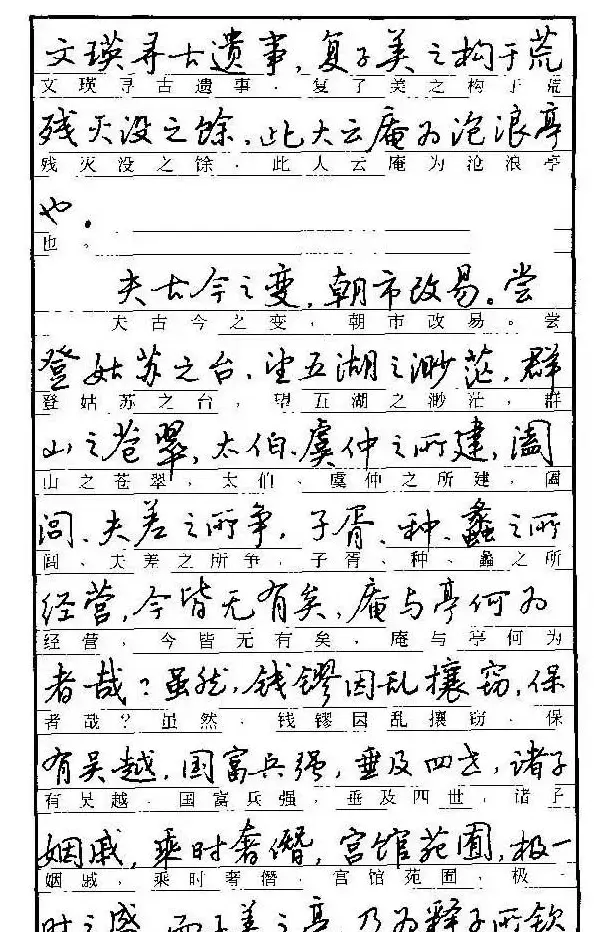 文瑛寻古遗事，复子美之构于荒
文瑛寻古遗事，复子美之构于荒
残灭没之馀，此大云庵为沧浪亭
残灭没之馀，此大云庵为沧浪亭
也。
也。
夫古今之变，朝市改易。尝
夫古今之变，朝市改易。尝
登姑苏之台，望五湖之渺茫，群
登姑苏之台，望五湖之渺茫，群
山之苍翠，太伯、虞仲之所建，阖
山之苍翠，太伯、虞仲之所建，阖
闾、夫差之所争，子胥、种、蠡之所
闾、夫差之所争，子胥、种、蠡之所
经营，今皆无有矣，庵与亭何为
经营，今皆无有矣，庵与亭何为
者哉？虽然，钱镠因乱攘窃，保
者哉？虽然，钱镠因乱攘窃，保
有吴越，国富兵强，垂及四世，诸子
有吴越，国富兵强，垂及四世，诸子
姻戚，乘时奢僭，宫馆苑囿，极一
姻戚，乘时奢僭，宫馆苑囿，极一
时之盛，而子美之亭，乃为释子所钦